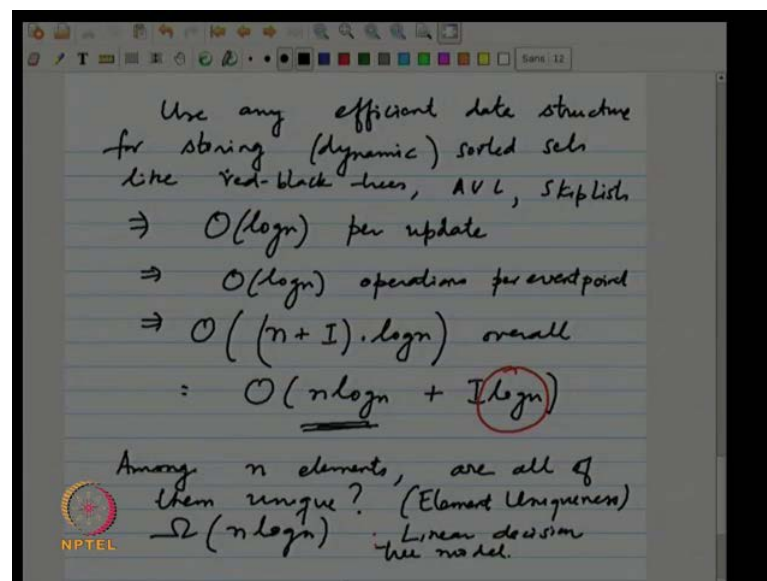 Sans 12
Use any efficient data structure
for storing (dynamic) sorted sets
like red-black trees, AVL, Skiplists
⇒ O(logn) per update
⇒ O(logn) operations per event point
⇒ O((n + I).logn) overall
= O(nlogn + Ilogn)
Among n elements, are all of
them unique? (Element Uniqueness)
Ω(nlogn) : Linear decision
tree model.
NPTEL